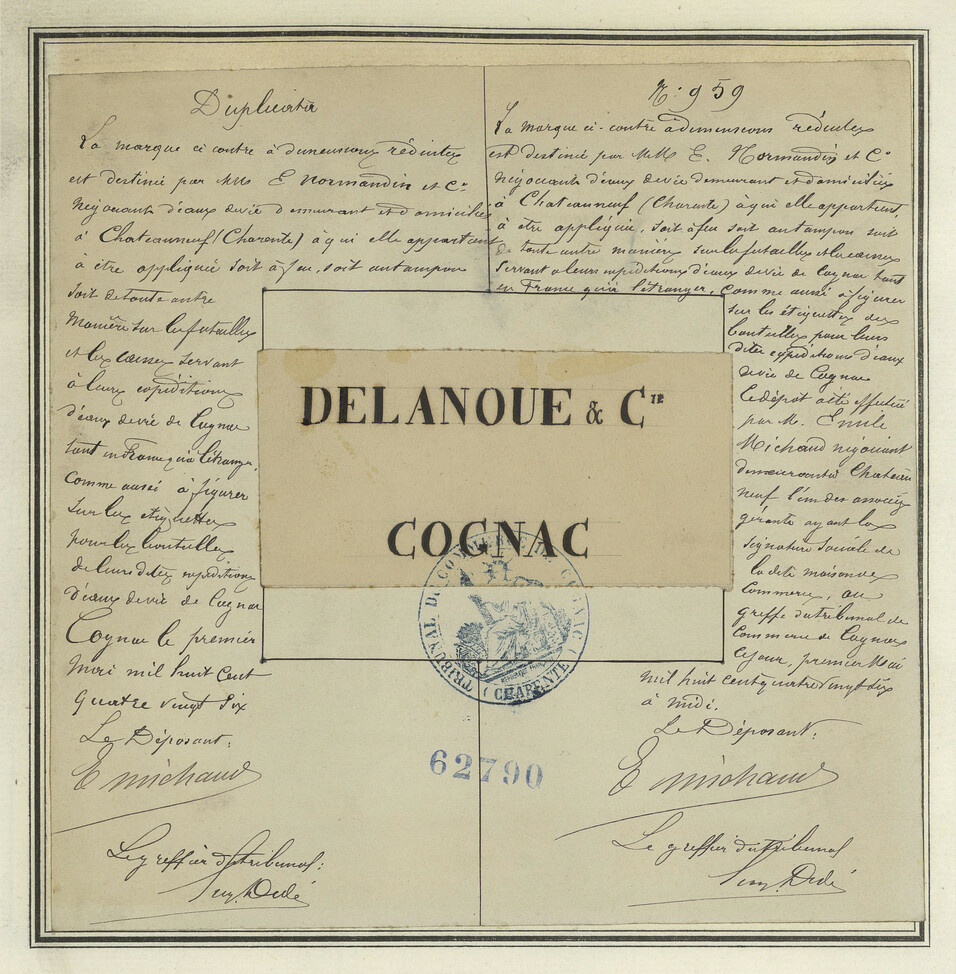 Duplicata
La marque ci contre à dimensions réduites
est destinée par MM E Normandin et Cie
négociants d'eaux de vie demeurant et domiciliés
à Chateauneuf (Charente) à qui elle appartient
à être appliquée soit à feu, soit au tampon
soit de toute autre
Manière sur les futailles
et les caisses servant
à leurs expéditions
d'eaux de vie de Cognac
tant en France qu'à l'étranger,
Comme aussi à figurer
sur les etiquettes
pour les bouteilles
de leurs dites expéditions
d'eaux de vie de Cognac
Cognac le premier
Mai mil huit cent
quatre vingt dix
Le Déposant:
E Michaud
Le greffier du tribunal:
N: 959
La marque ci-contre à dimensions réduites
est destinée par MM E. Normandin et Cie
négociants d'eaux de vie demeurant et domiciliés
à Chateauneuf (Charente) à qui elle appartient,
à être appliquée, soit à feu soit au tampon soit
de toute autre manière sur les futailles et les caisses
servant à leurs expéditions d'eaux de vie de Cognac tant
en France qu'à l'étranger, comme aussi à figurer
sur les étiquettes des
bouteilles pour leurs
dites expéditions d'eaux
de vie de Cognac
Le dépôt a été effectué
par M. Emile
Michaud négociant
demeurant à Chateau
neuf l'un des associés
gérants ayant la
signature sociale de
la dite maison de
Commerce, au
greffe du tribunal de
Commerce de Cognac
ce jour, premier Mai
mil huit cent quatre vingt dix
à midi.
Le Déposant:
E Michaud
Le greffier du tribunal
DELANOUE & CIE
COGNAC
TRIBUNAL DE COMMERCE DE COGNAC
(CHARENTE)
62790